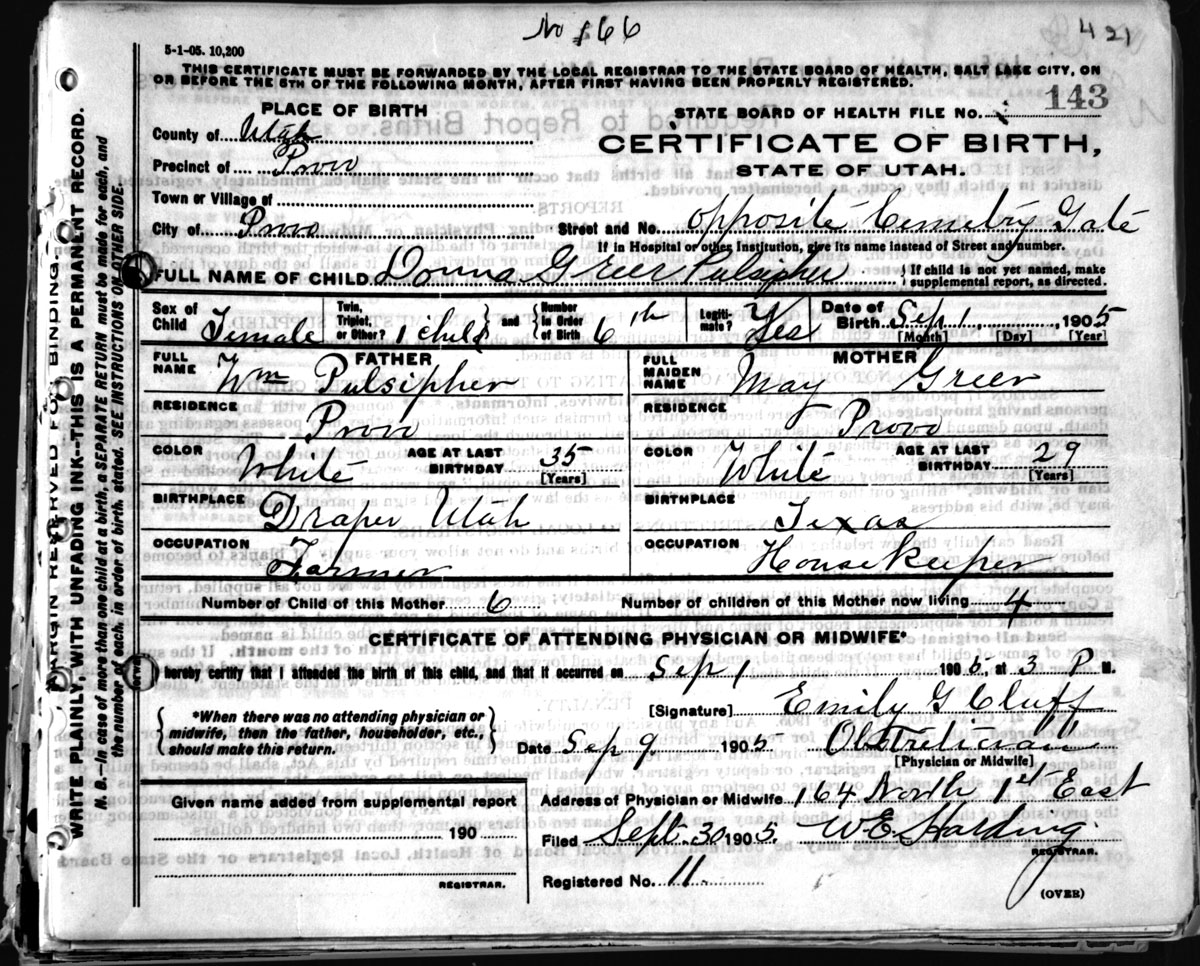 No 166
421
5-1-05. 10,200
THIS CERTIFICATE MUST BE FORWARDED BY THE LOCAL REGISTRAR TO THE STATE BOARD OF HEALTH, SALT LAKE CITY, ON
OR BEFORE THE 5TH OF THE FOLLOWING MONTH, AFTER FIRST HAVING BEEN PROPERLY REGISTERED.
PLACE OF BIRTH
STATE BOARD OF HEALTH FILE No. 143
County of Utah
CERTIFICATE OF BIRTH,
Precinct of Provo
STATE OF UTAH.
Town or Village of
City of Provo Street and No. Opposite Cemetry Gate
If in Hospital or other Institution, give its name instead of Street and number.
FULL NAME OF CHILD Donna Greer Pulsipher { If child is not yet named, make
supplemental report, as directed.
Sex of Child Female Twin, Triplet, or Other? 1 child } and { Number in Order of Birth 6th Legitimate? Yes Date of Birth Sep 1 1905
[Month] [Day] [Year]
FATHER MOTHER
FULL NAME Wm Pulsipher FULL MAIDEN NAME May Greer
RESIDENCE Provo RESIDENCE Provo
COLOR White AGE AT LAST BIRTHDAY 35 [Years] COLOR White AGE AT LAST BIRTHDAY 29 [Years]
BIRTHPLACE Draper Utah BIRTHPLACE Texas
OCCUPATION Farmer OCCUPATION Housekeeper
Number of Child of this Mother 6 Number of children of this Mother now living 4
CERTIFICATE OF ATTENDING PHYSICIAN OR MIDWIFE*
I hereby certify that I attended the birth of this child, and that it occurred on Sep 1 1905, at 3 P M.
{ *When there was no attending physician or
midwife, then the father, householder, etc.,
should make this return. }
[Signature] Emily G Cluff
Date Sep 9 1905 Obstetrician
[Physician or Midwife]
Given name added from supplemental report
190
REGISTRAR.
Address of Physician or Midwife 164 North 1st East
Filed Sept. 30 1905 W E Harding
REGISTRAR.
Registered No. 11
(OVER)
MARGIN RESERVED FOR BINDING
WRITE PLAINLY, WITH UNFADING INK—THIS IS A PERMANENT RECORD.
N. B.—In case of more than one child at a birth, a SEPARATE RETURN must be made for each, and
the number of each, in order of birth stated. SEE INSTRUCTIONS ON OTHER SIDE.